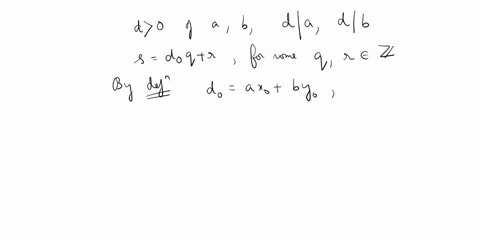 d>0 of a, b, d|a, d|b
s = d₀q+r, for some q, r ∈ ℤ
By defⁿ d₀ = ax₀ + by₀,